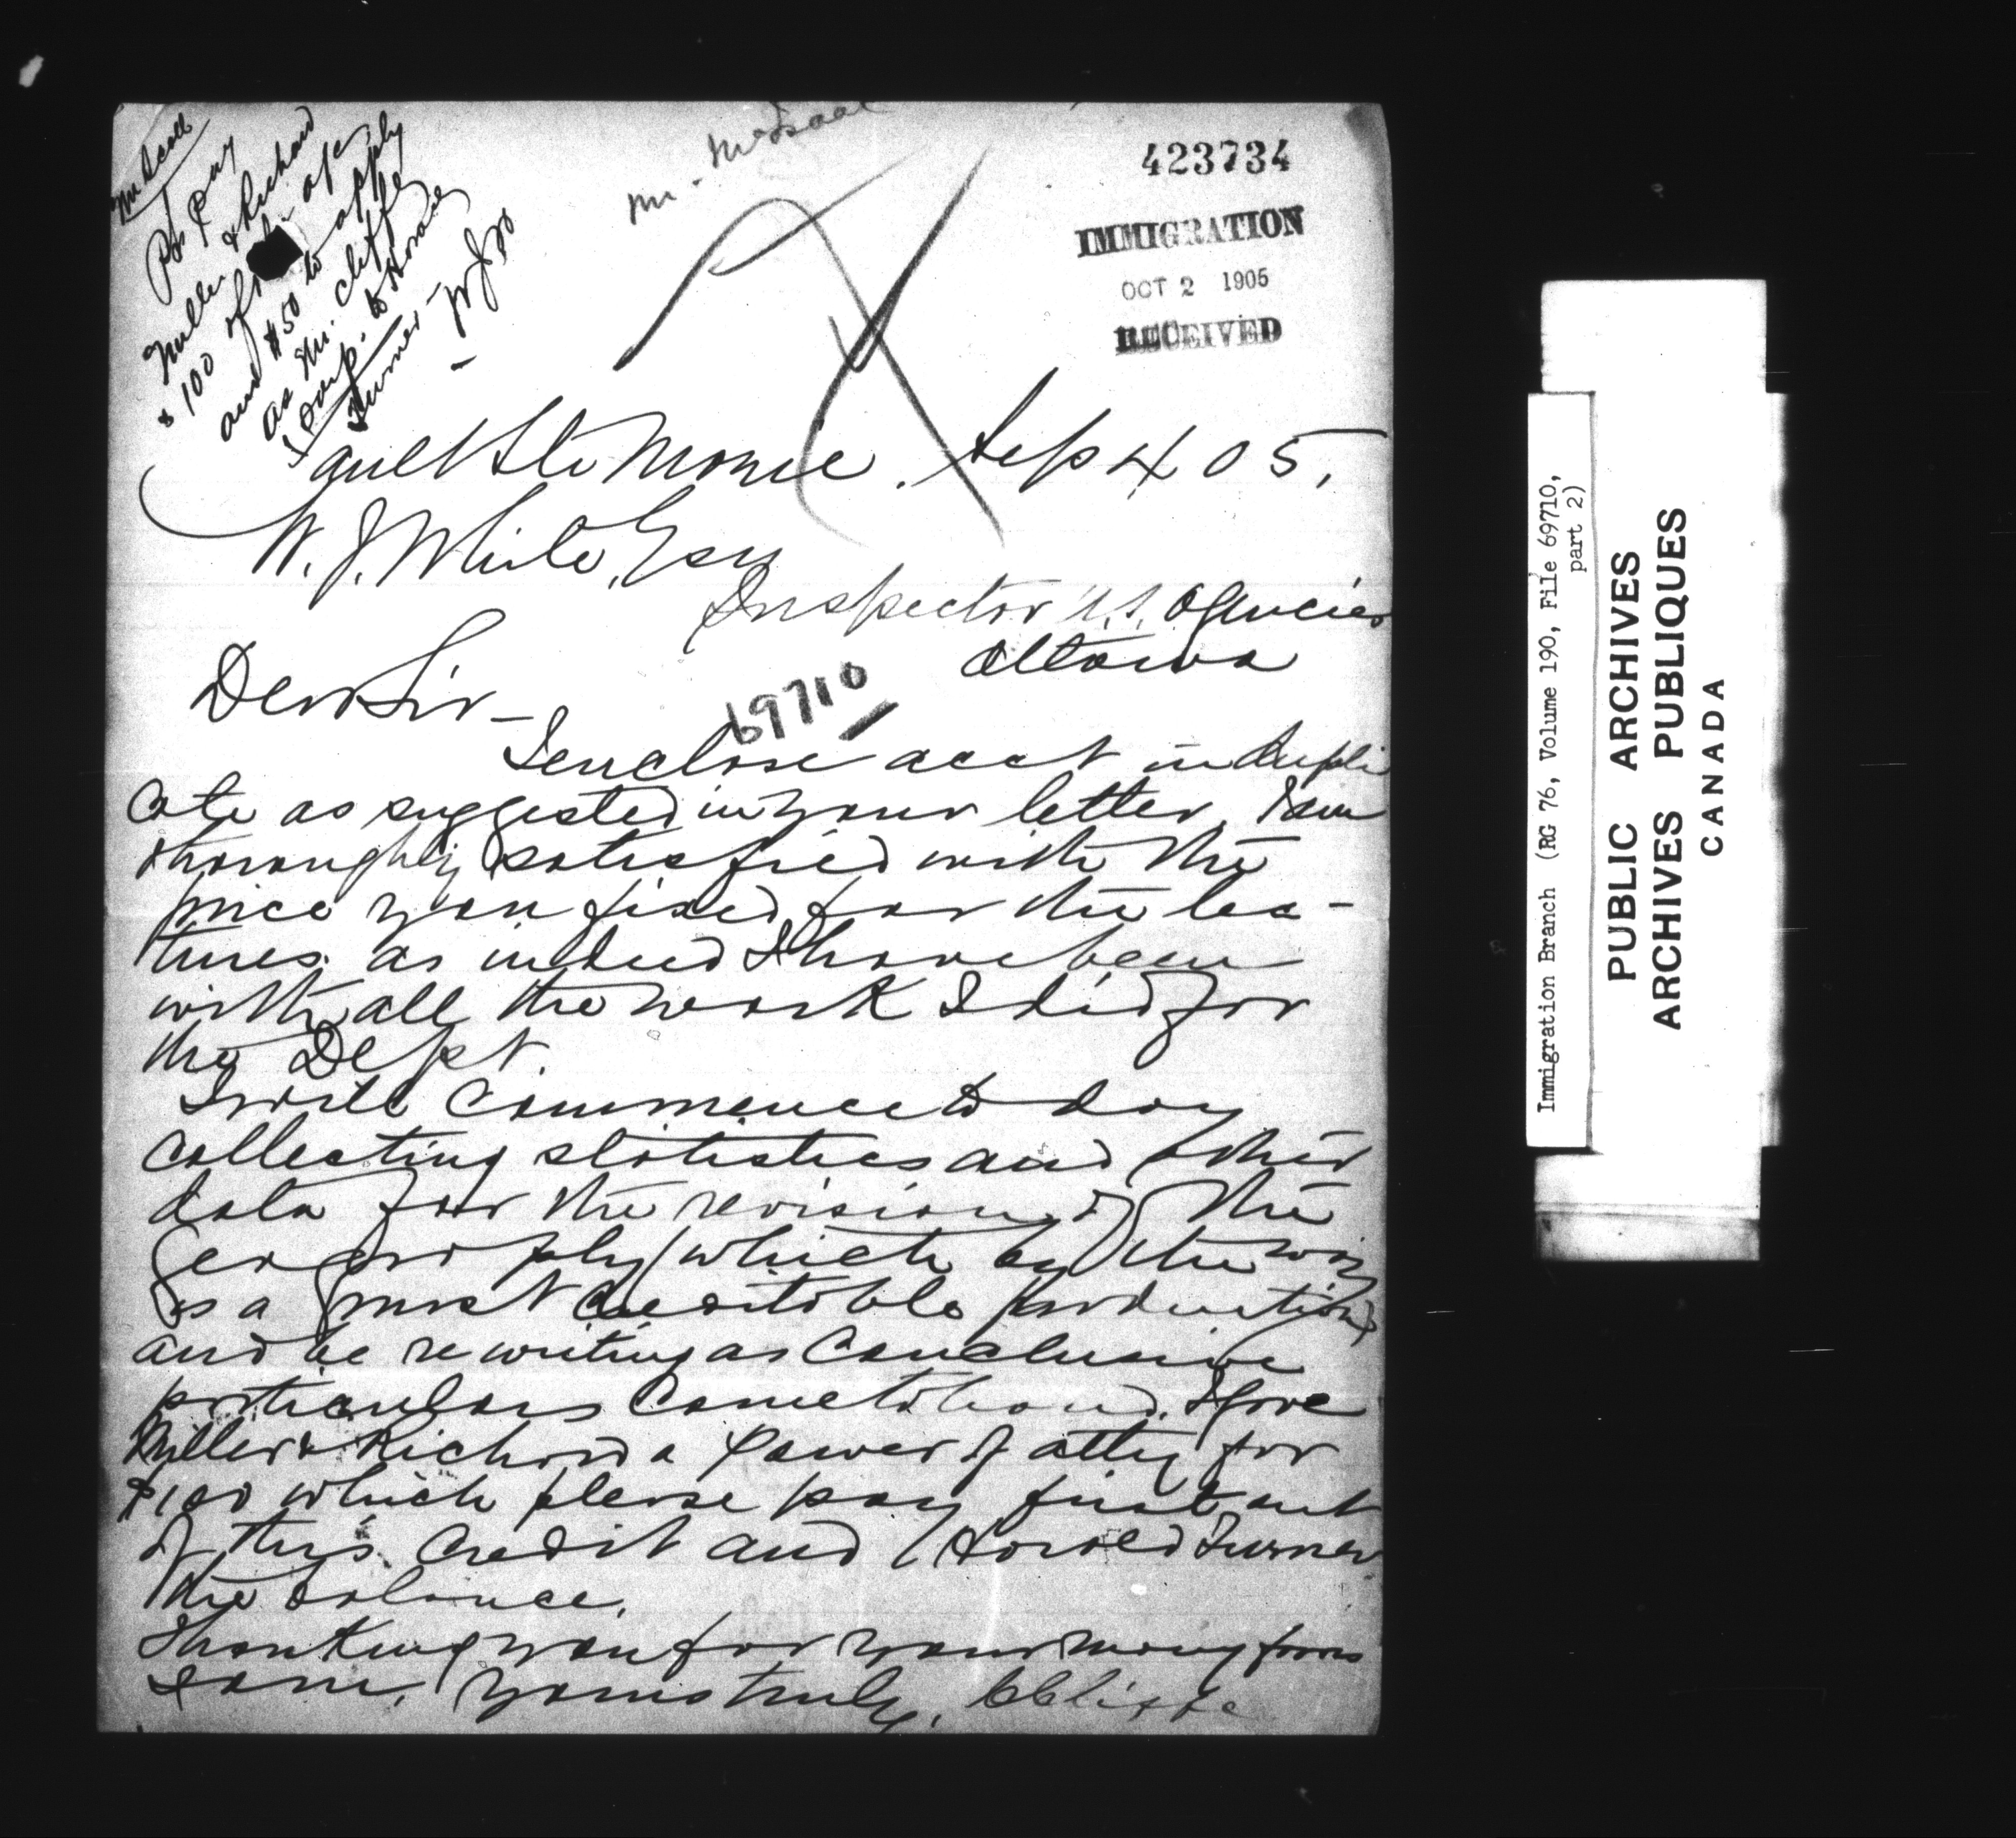 Mr Scott
Pls pay
Miller & Richard
$100 of a/c
and $50 to apply
as Mr. Cliffe
to
Turner -
WJW
Mr. McIsaac
423734
IMMIGRATION
OCT 2 1905
RECEIVED
Sault Ste Marie. Sep 4 05.
W. J. White, Esq
Inspector U.S. Agencies
Ottawa
Dear Sir -
69710
I enclose acct in dupli
cate as suggested in your letter. I am
thoroughly satisfied with the
price you fixed for the lec-
tures as indeed I have been
with all the work I did for
the Dept.
I will commence to day
collecting statistics and other
data for the revision of the
geography (which by the way
is a most creditable production)
and be re writing as conclusive
particulars come to hand. I gave
Miller & Richard a Power of atty for
$100 which please pay first out
of this credit and Harold Turner
the balance.
Thanking you for your many favors
I am, Yours truly, C Cliffe
Immigration Branch (RG 76, Volume 190, File 69710,
part 2)
PUBLIC ARCHIVES
ARCHIVES PUBLIQUES
CANADA